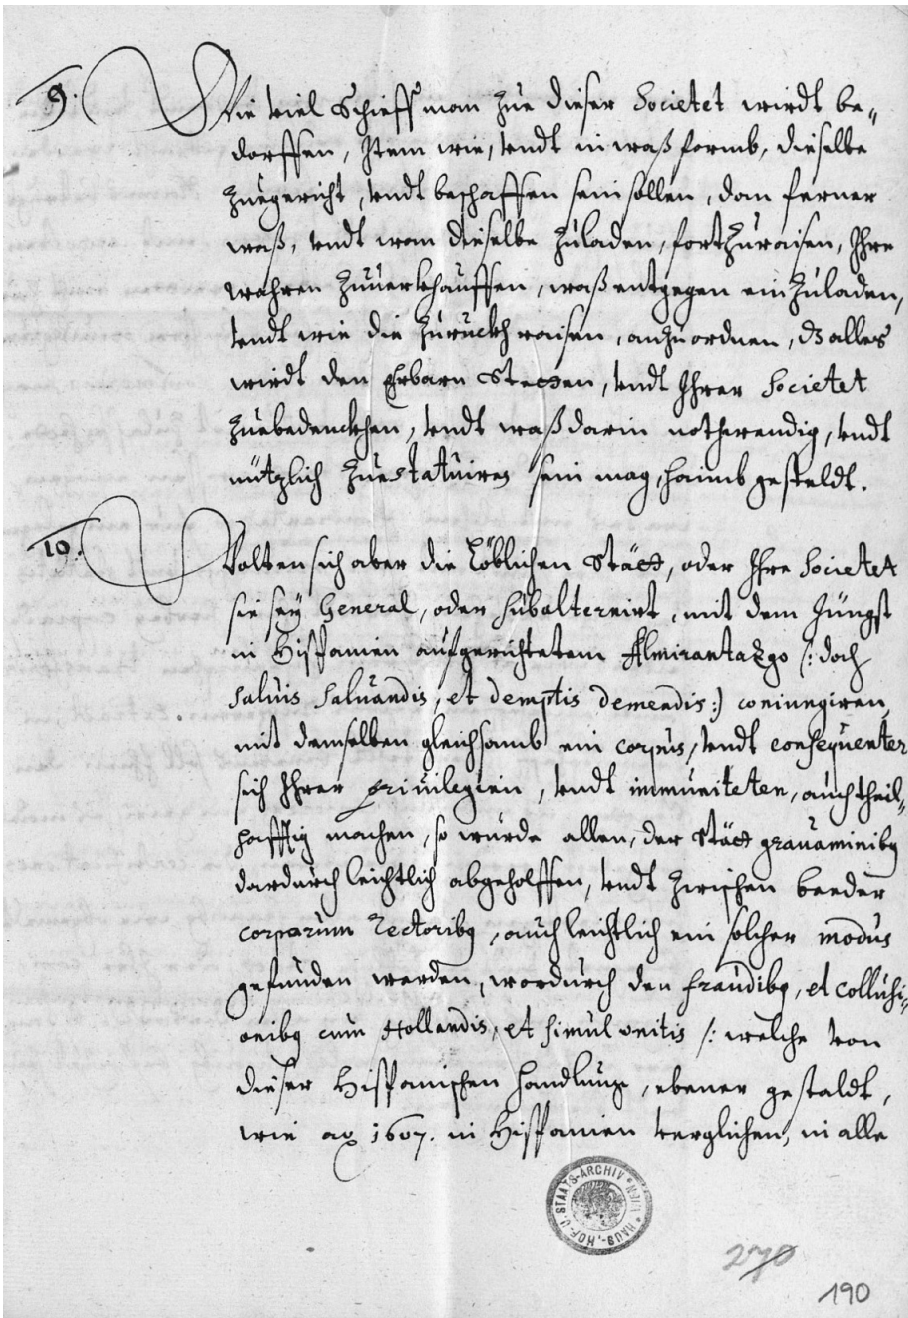 9. Wie viel Schieff man zue dieser Societet wirdt be„
dorffen, Item wie, vndt in waß formb, dieselbe
zuegericht, vndt beschaffen sein sollen, dan ferner
waß, vndt wan dieselbe zuladen, fortzuraisen, Ihre
wahren zuuerkhauffen, waß entgegen ein zuladen,
vndt wie die zuruckh raisen, anzuordnen, dz alles
wirdt den Ehrbarn Stetten, vndt Ihrer Societet
zuebedenckhen, vndt waß darin nothwendig, vndt
nützlich zue statuiren sein mag, haimb gesteldt.
10. Wolten sich aber die Löblichen Stätt, oder Ihre Societet
sie sey General, oder subalternirt, mit dem Jüngst
in Hispanien aufgerichtetem Almirantazgo /: doch
saluis saluandis, et demptis demendis :/ coniungiren,
mit demselben gleichsamb ein corpus, vndt consequenter
sich Ihrer Priuilegien, vndt immuniteten, auch theil„
hafftig machen, so wurde allen, der Stätt grauaminibq
dardurch leichtlich abgeholffen, vndt zwischen beeder
corporum Rectoribq, auch leichtlich ein solcher modus
gefunden werden, wordurch den fraudibq, et collusi„
onibq cum Hollandis, et simul vnitis /: welche von
dieser Hispanischen handlung, ebener gestaldt,
wie ao 1607. in Hispanien verglichen, in alle
HAUS-, HOF- U. STAATS-ARCHIV * WIEN *
270
190